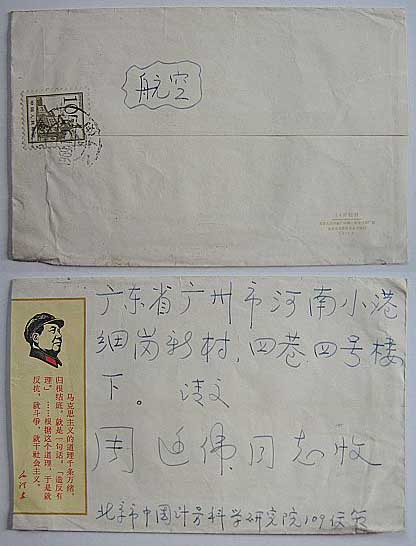 航空
10
广东省广州市河南小港
细岗新村，四巷四号楼
下。请交
周廷伟同志收
北京市中国计量科学研究院109信箱
马克思主义的道理千条万绪，
归根结底，就是一句话，“造反有
理”。……根据这个道理，于是就
反抗，就斗争，就干社会主义。
毛泽东